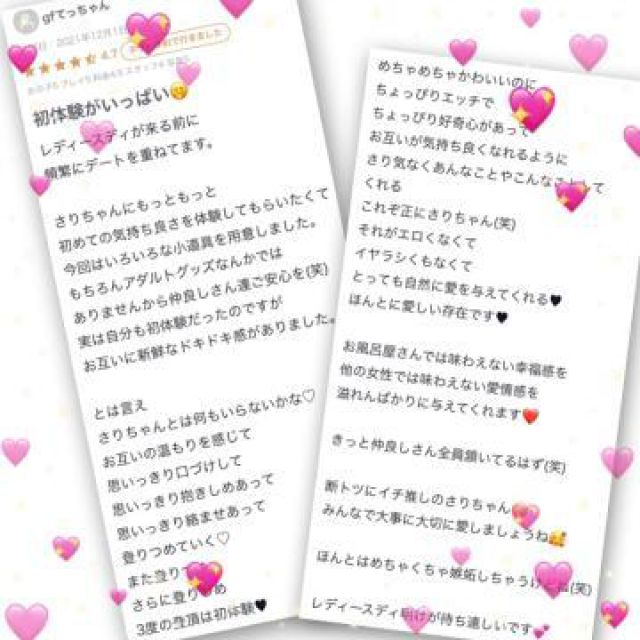 gfてっちゃん
2021年12月1
4.7
で行きました
初体験がいっぱい🤭
レディースディが来る前に
頻繁にデートを重ねてます。
さりちゃんにもっともっと
初めての気持ち良さを体験してもらいたくて
今回はいろいろな小道具を用意しました。
もちろんアダルトグッズなんかでは
ありませんから仲良しさん達ご安心を(笑)
実は自分も初体験だったのですが
お互いに新鮮なドキドキ感がありました。
とは言え
さりちゃんとは何もいらないかな♡
お互いの温もりを感じて
思いっきり口づけして
思いっきり抱きしめあって
思いっきり絡ませあって
登りつめていく♡
また登り
さらに登り め
3度の登頂は初体験🖤
めちゃめちゃかわいいのに
ちょっぴりエッチで
ちょっぴり好奇心があって
お互いが気持ち良くなれるように
さり気なくあんなことやこんな として
くれる
これぞ正にさりちゃん(笑)
それがエロくなくて
イヤラシくもなくて
とっても自然に愛を与えてくれる🖤
ほんとに愛しい存在です🖤
お風呂屋さんでは味わえない幸福感を
他の女性では味わえない愛情感を
溢れんばかりに与えてくれます❤️
きっと仲良しさん全員頷いてるはず(笑)
断トツにイチ推しのさりちゃん
みんなで大事に大切に愛しましょうね🥰
ほんとはめちゃくちゃ嫉妬しちゃうけどね(笑)
レディースディ明けが待ち遠しいです💕